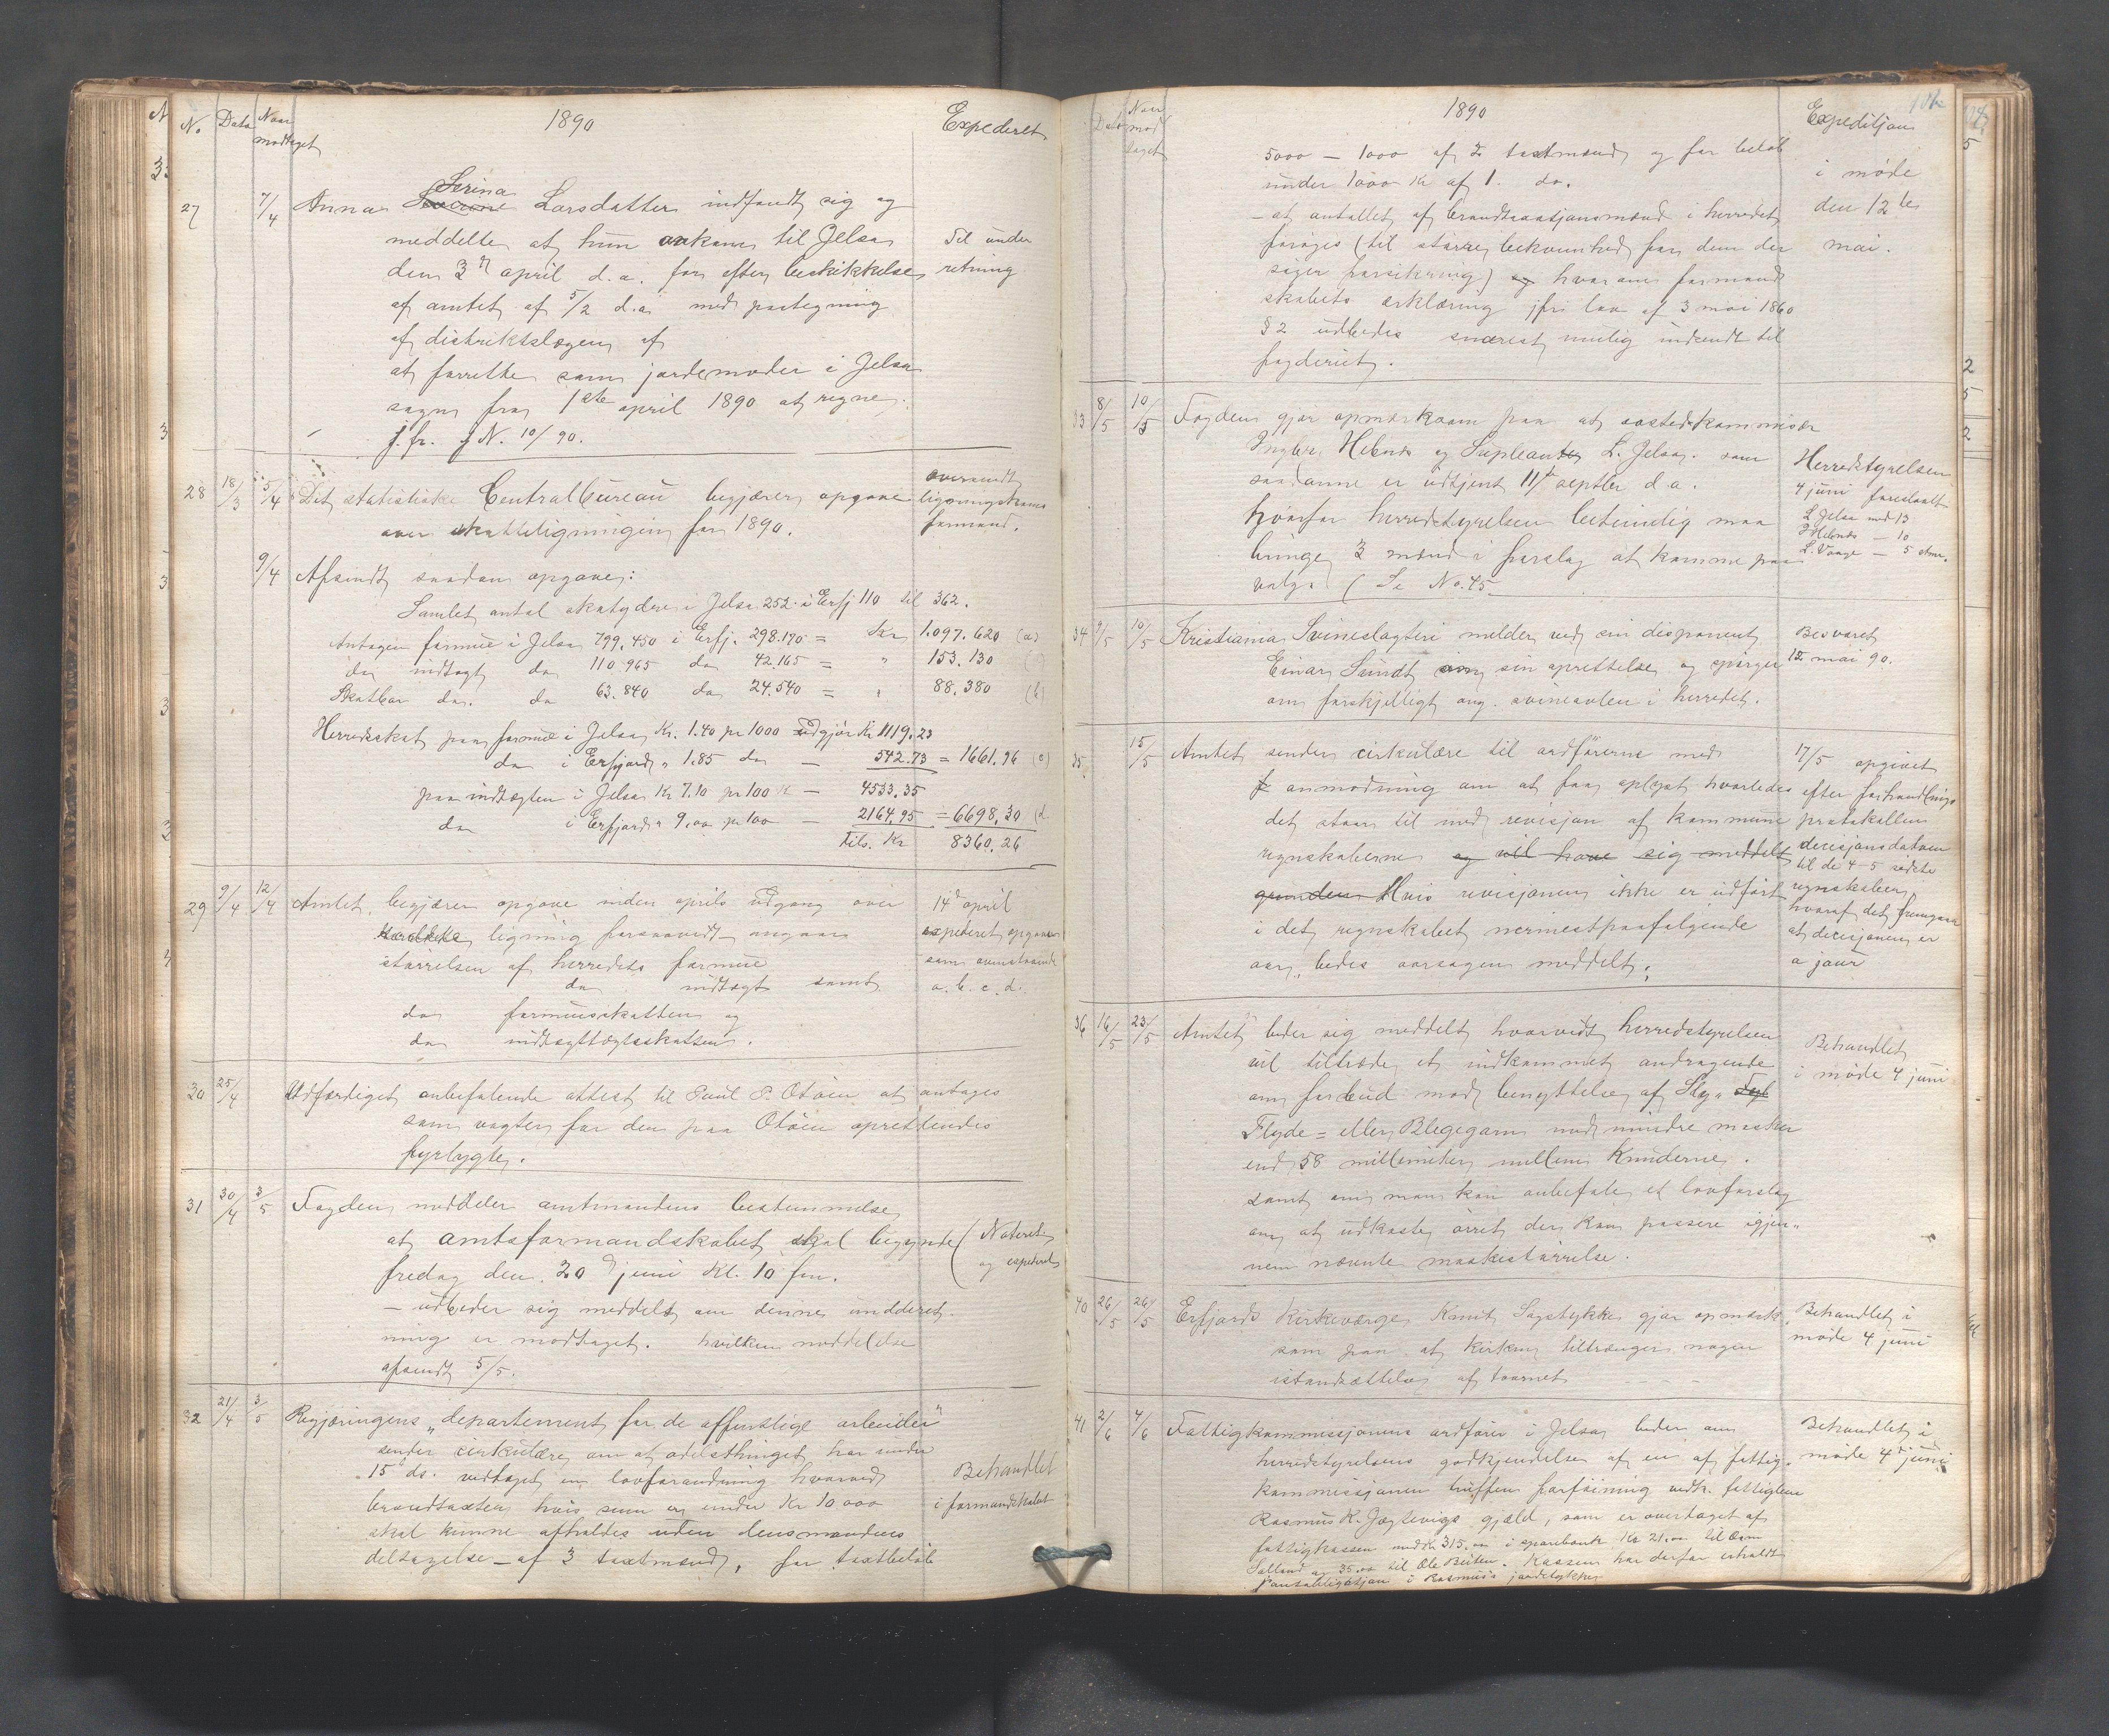 No. Dato Naar modtaget 1890 Expederet
27 7/4 Anna Serina Larsdatter indfandt sig og
meddelte at hun ankom til Jelsa
den 3die april d.a. for efter beskikkelse
af amtet af 5/2 d.a. med paategning
af distriktslægen af
at forrette som jordemoder i Jelsa
sogn fra 1ste april 1890 at regne.
j.fr. j N. 10/90.
Til under
retning
28 18/3 5/4 Det statistiske Centralbureau begjærer opgave
over skatteligningen for 1890.
oversendt
ligningskoms
formand.
9/4 Afsendt saadan opgave:
Samlet antal skatydere i Jelsa 252. i Erfj 110 til 362.
Antagen formue i Jelsa 799.450 i Erfj. 298.170 = Kr 1.097.620 (a)
do indtægt do 110.965 do 42.165 = " 153.130
Skatbar do. do 63.840 do 24.540 = " 88.380 (b)
Herredsskat paa formue i Jelsa Kr. 1.40 pr 1000 udgjør Kr 1119.23
do i Erfjord " 1.85 do — 542.73 = 1661.96 (c)
paa indtægten i Jelsa Kr 7.10 pr 100 K — 4533.35
do i Erfjord " 9,00 pr 100 — 2164.95 = 6698,30 (d.
Tils. Kr 8360.26
29 9/4 12/4 Amtet begjærer opgave inden aprils udgang over
ligning forsaavidt angaar
størrelsen af herredets formue
do indtægt samt
do formueskatten og
do indtægtsskatten.
14de april
expederet opgave
som ovenstaaende
a. b. c. d.
30 25/4 Udfærdiget anbefalende attest til Paul P. Otøen at antages
som vogter for den paa Otøen oprettendes
fyrlygte.
31 30/4 3/5 Fogden meddeler amtmandens bestemmelse
at amtsformandskabet skal begynde
fredag den 20de juni kl. 10 fm.
— udbeder sig meddelt om denne underret-
ning er modtaget. hvilken meddelelse
afsendt 5/5.
(Noteret
og expederet
32 21/4 3/5 Regjæringens "departement for de offentlige arbeider"
sender cirkulære om at odelsthinget har under
15de ds. vedtaget en lovforandring hvorved
brandtaxter hvis sum er under Kr 10 000
skal kunne afholdes uden lensmandens
deltagelse — af 3 taxtmænd, for taxtbeløb
Behandlet
i formandskabet
Dato Naar modtaget 1890 Expeditjon
5000 — 1000 af 2 taxtmænd og for beløb
under 1000 Kr af 1. do.
— at antallet af brandtaxtjonsmænd i herredet
forøges (til større bekvemhed for dem der
søger forsikring) og hvorom formand
skabets erklæring jfr. lov af 3 mai 1860
§ 2 udbedes snarest mulig indsendt til
fogderiet.
i møde
den 12te
mai.
33 8/5 10/5 Fogden gjør opmærksom paa at
Hebnes og Supleanten L. Jelsa. som
saadanne er udtjent 11te septbr d.a.
hvorfor herredstyrelsen betimelig maa
bringe 3 mænd i forslag at komme paa
valg. (Se No. 45.
Herredstyrelsen
4 juni foreslaatt
L Jelsa med 13
Hebnes — 10
L. Vaage — 5 stm.
34 9/5 10/5 Kristiania Svineslagteri melder ved sin disponent
Einar Sundt sin oprettelse og spørger
om forskjelligt ang. svineavlen i herredet.
Besvaret
12 mai 90.
35 15/5 Amtet sender cirkulære til ordførerne med
anmodning om at faa oplyst hvorledes
det staar til med revisjon af kommune
regnskaberne og vil have sig meddelt
grunden Hvis revisjonen ikke er udført
i det regnskabet nermestpaafølgende
aar, bedes aarsagen meddelt.
17/5 opgivet
efter forhandlings
protokollen
decisjonsdatoen
til de 4–5 sidste
regnskaber,
hvoraf det fremgaar
at decisjonen er
a jour
36 16/5 23/5 Amtet beder sig meddelt hvorvidt herredstyrelsen
vil tiltræde et indkommet andragende
om forbud mod benyttelse af
Flyde= eller Blegegarn med mindre masker
end 58 millimeter mellem Knuderne.
samt om man kan anbefale et lovforslag
om at udkaste ørret der kan passere igjen-
nem nævnte maskestørrelse.
Behandlet
i møde 4 juni
40 26/5 26/5 Erfjords Kirkeværge Knut Sagstykke gjør opmærk-
som paa at kirken tiltrænger nogen
istandsættelse af taarnet
Behandlet i
møde 4 juni
41 2/6 4/6 Fattigkommissjonens ordfører i Jelsa beder om
herredstyrelsens godkjendelse af en af fattig-
kommissjonen truffen forføining vedk. fattiglem
Rasmus K. Jøgtevigs gjæld, som er overtaget af
fattigkassen med Kr 315.00 i sparebank Kr 21.00 til
og 35.00 til Ole Beiten. Kassen har derfor erholdt
pantobligatjon i Rasmus's jordstykke
Behandlet i
møde 4de juni